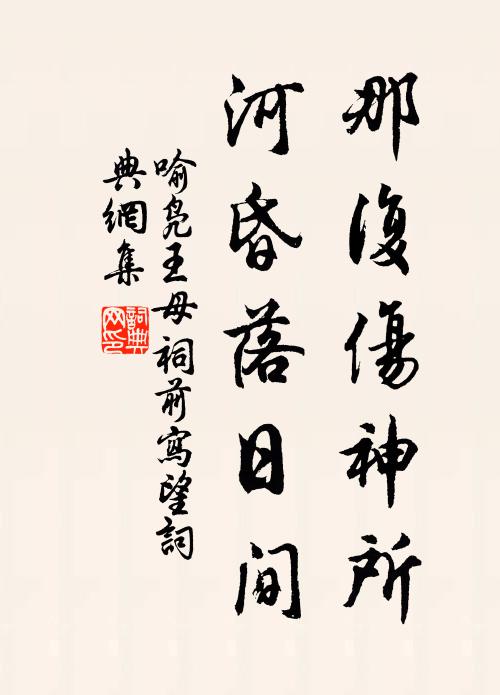 那復傷神所
河昏落日間
喻鳧王母祠前寫望詞
典網集
詞典
网印